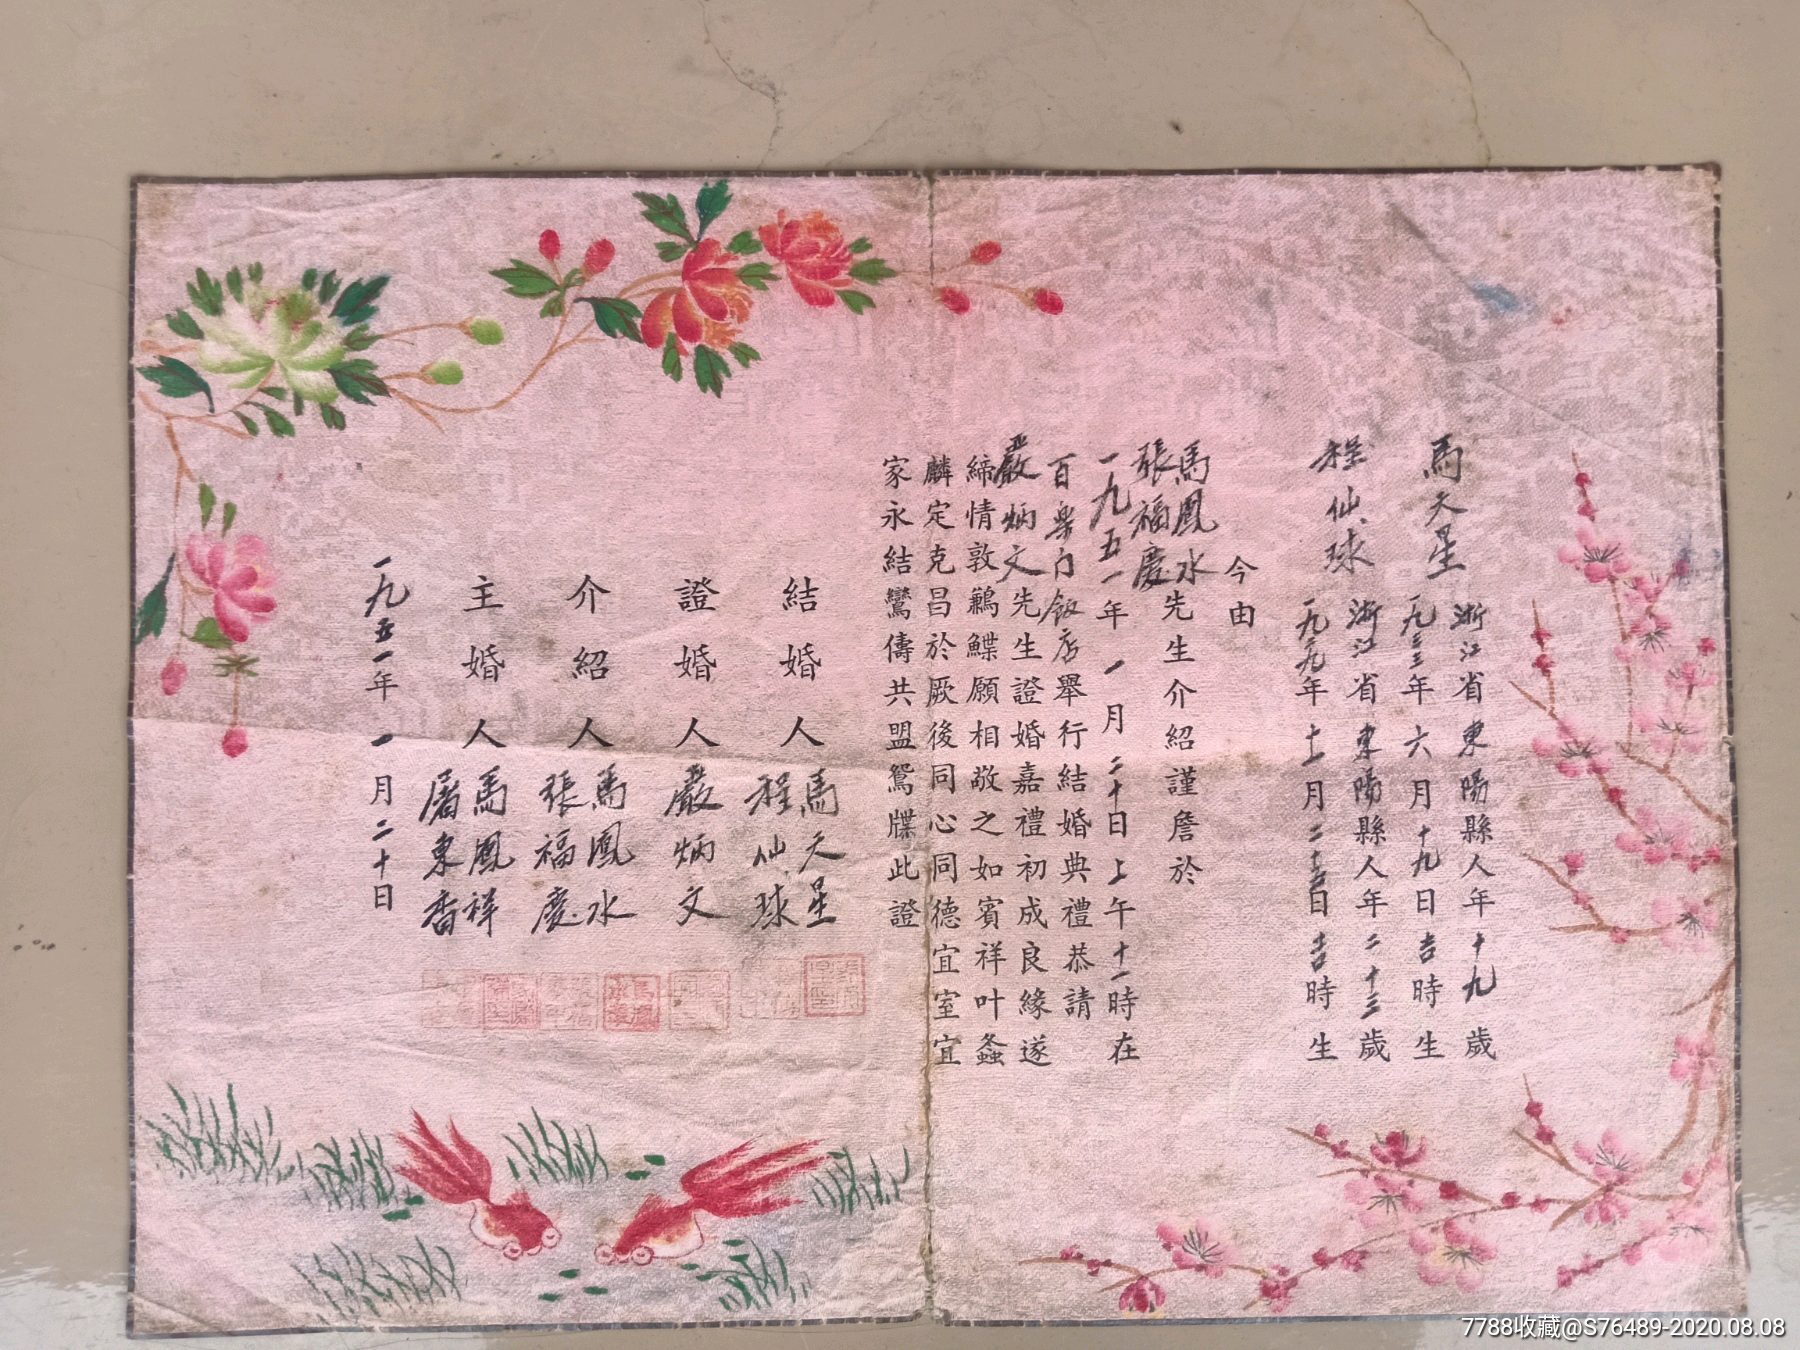 馬天星 浙江省東陽縣人年十九歲
一九三三年六月十九日吉時生
程仙球 浙江省東陽縣人年二十三歲
一九二九年十一月日吉時生
今由
馬鳳水
張福慶先生介紹謹詹於
一九五一年一月二十日上午十一時在
百樂门飯店舉行結婚典禮恭請
嚴炳文先生證婚嘉禮初成良緣遂
締情敦鶼鰈願相敬之如賓祥叶螽
麟定克昌於厥後同心同德宜室宜
家永結鸞儔共盟鴛牒此證
結婚人 馬天星
程仙球
證婚人 嚴炳文
介紹人 馬鳳水
張福慶
主婚人 馬鳳祥
屠東香
一九五一年一月二十日
7788收藏@S76489-2020.08.08